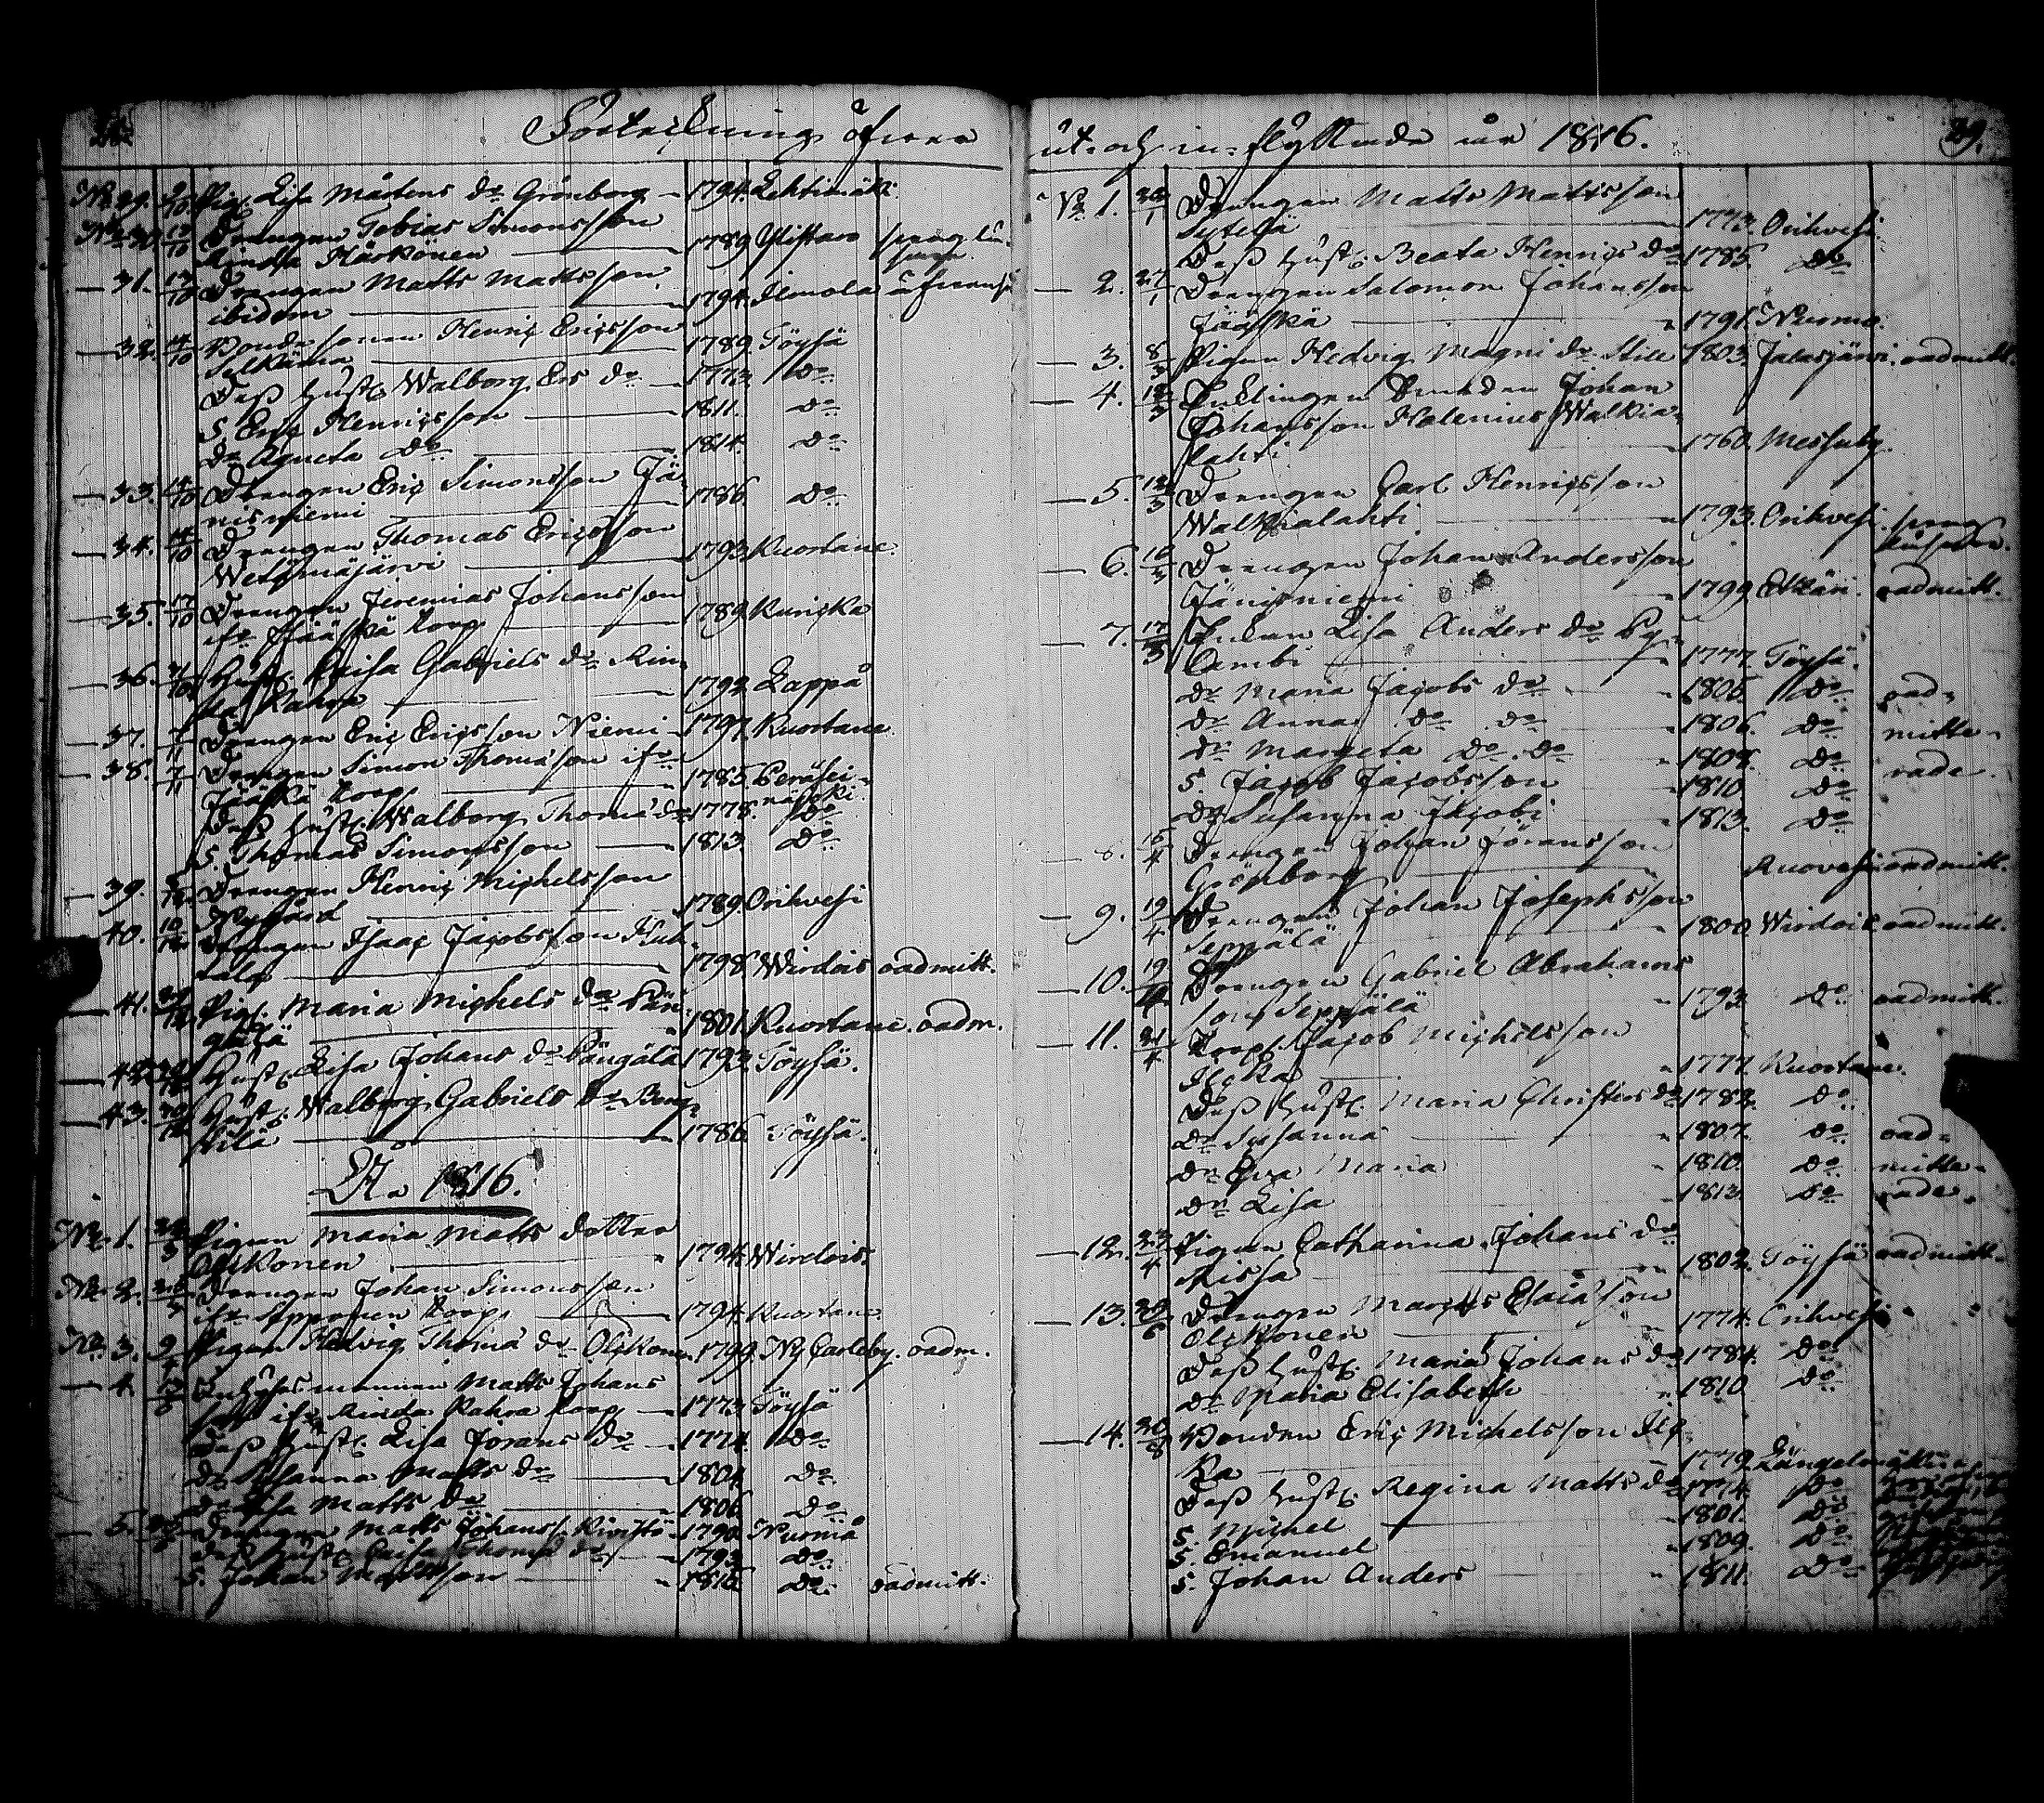 Förteckning öfver
N:o 29. Pig. Lisa Mårtens dr Grönborg 1794. Lehtimäki
Drengen Tobias Simonsson
Rinda Härkönen 1789. Ylistaro
31. Drengen Matts Mattsson
ibidem 1794. Ilmola
32. 14/10 Bondesonen Henric Ericsson
1789. Töysä
Dess Hust. Walborg Ers dr 1773. do
S. Eric Henricsson 1811. do
dr Agneta do 1814. do
33. 14/10 Drengen Eric Simonsson Jä-
nisniemi 1786. do
34. 14/10 Drengen Thomas Ericsson
Wetämäjärvi 1793. Kuortane.
35. 17/10 Drengen Jeremias Johansson
ifr. Jääskä torp 1789. Kuricka
36. Hust. Caisa Gabriels dr Rin-
da Rahra 1792. Lappå
37. Drengen Eric Ericsson Niemi 1797. Kuortane
38. 7/11 Drengen Simon Thomason ifr.
Jääskä torp 1785. Peräsei-
näjoki
Dess Hust. Walborg Thomæ dr 1778. do
S. Thomas Simonsson 1813. do
39. Drengen Henric Michelsson
Nygård 1789. Orihvesi
40. Drengen Isaac Jacobsson
1798. Wirdois oadmitt.
41. Pig. Maria Michels dr Pän-
gälä 1801. Kuortane. oadm.
42. Hust. Lisa Johans dr Pängälä 1793. Töysä.
43. Hust. Walborg Gabriels dr
1786. Töysä.
A:o 1816.
N:o 1. Pigan Maria Matts dotter
Olckonen 1794. Wirdois
N:o 2. Drengen Johan Simonsson
ifr. torp 1794. Kuortane
N:o 3. Pigan Hedvig Thomæ dr Olckonen 1799. Ny Carleby. oadm.
4. Inhysesmannen Matts Johans
son ifr. Rinda Rahra torp 1773. Töysä
Dess Hust. Lisa Jörans dr 1774. do
dr Susanna Matts dr 1804. do
dr Lisa Matts dr 1806. do
5. Drengen Matts Johanss. 1790. Nurmo
Dess Hust. Caisa Thomæ dr 1793. do
S. Johan Mattsson 1816. do oadmitt.
ut- och in-flyttade år 1816. 29.
N:o 1. Drengen Matts Mattsson
Sytelä 1773. Orihvesi
Dess Hust. Beata Henrics dr 1785. do
2. 27/1 Drengen Salomon Johansson
Jääskä 1791. Nurmo.
3. 8/3 Pigan Hedvig Magni dr Stille 1803. Jalasjärvi. oadmitt.
4. Enklingen Johan
Johansson Holenius Walkia-
lahti 1760. Messuby.
5. 12/3 Drengen Carl Henricsson
Walkialahti 1793. Orihvesi.
6. Drengen Johan Andersson
Jänisniemi 1799. Etsäri. oadmitt.
7. 17/3 Enkan Lisa Anders dr Py-
1777. Töysä.
dr Maria Jacobs dr 1805. do oad-
dr Anna do do 1806. do mitte-
dr Margeta do do 1808. do rade
S. Jacob Jacobsson 1810. do
dr Susanna Jacobi 1813. do
8. 15/4 Drengen Johan Jöransson
Grönborg Ruovesi oadmitt.
9. 19/4 Drengen Johan Josephsson
Seppälä 1800. Wirdois oadmitt.
10. 19/4 Drengen Gabriel Abrahams
son Seppälä 1793. do oadmitt.
11. 21/4 Torp. Jacob Michelsson
Ilcka 1777. Kuortane.
Dess Hust. Maria Christers dr 1782. do
dr Susanna 1807. do oad-
dr Eva Maria 1810. do mitte-
dr Lisa 1813. do rade.
12. 23/4 Pigan Catharina Johans dr
Rissa 1802. Töysä oadmitt.
13. Drengen Esaiæson
Olckonen 1774. Orihvesi
Dess Hust. Maria Johans dr 1784. do
dr Maria Elisabeth 1810. do
14. Bonden Eric Michelsson Ilc-
ka 1779. Längelmäki
Dess Hust. Regina Matts dr 1774. do
S. Michel 1801. do
S. Emanuel 1809. do
S. Johan Anders 1811. do